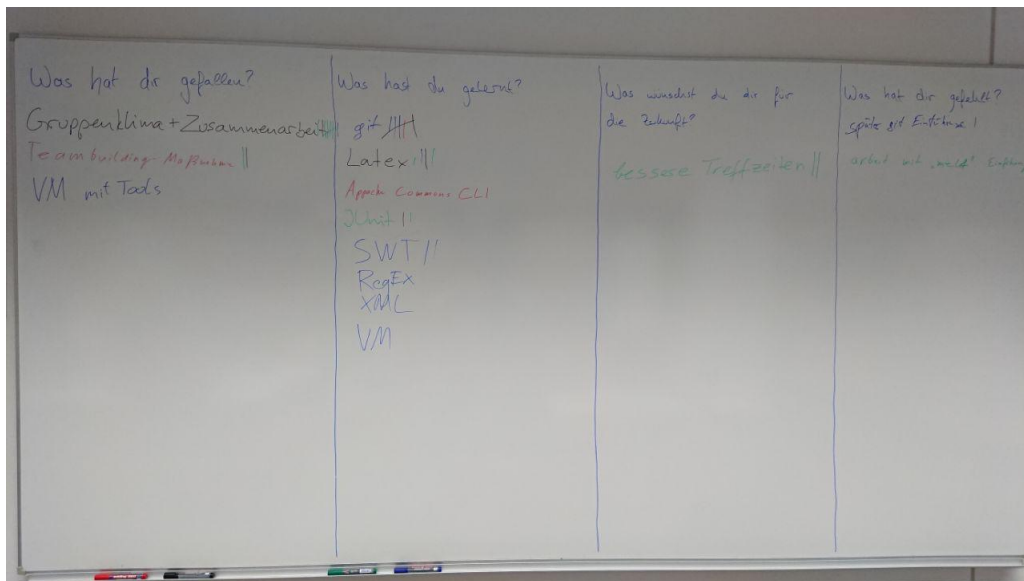 Was hat dir gefallen?
Gruppenklima + Zusammenarbeit
Teambuilding-Maßnahme ||
VM mit Tools
Was hast du gelernt?
git
Latex
Appache Commons CLI
JUnit ||
SWT ||
RegEx
XML
VM
Was wünschst du dir für
die Zukunft?
bessere Treffzeiten ||
Was hat dir gefehlt?
späte git Einführung |
arbeit mit "meld" Einführung